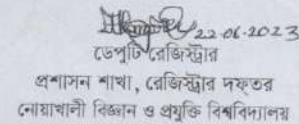 22-06-2023
ডেপুটি রেজিস্ট্রার
প্রশাসন শাখা, রেজিস্ট্রার দফতর
নোয়াখালী বিজ্ঞান ও প্রযুক্তি বিশ্ববিদ্যালয়